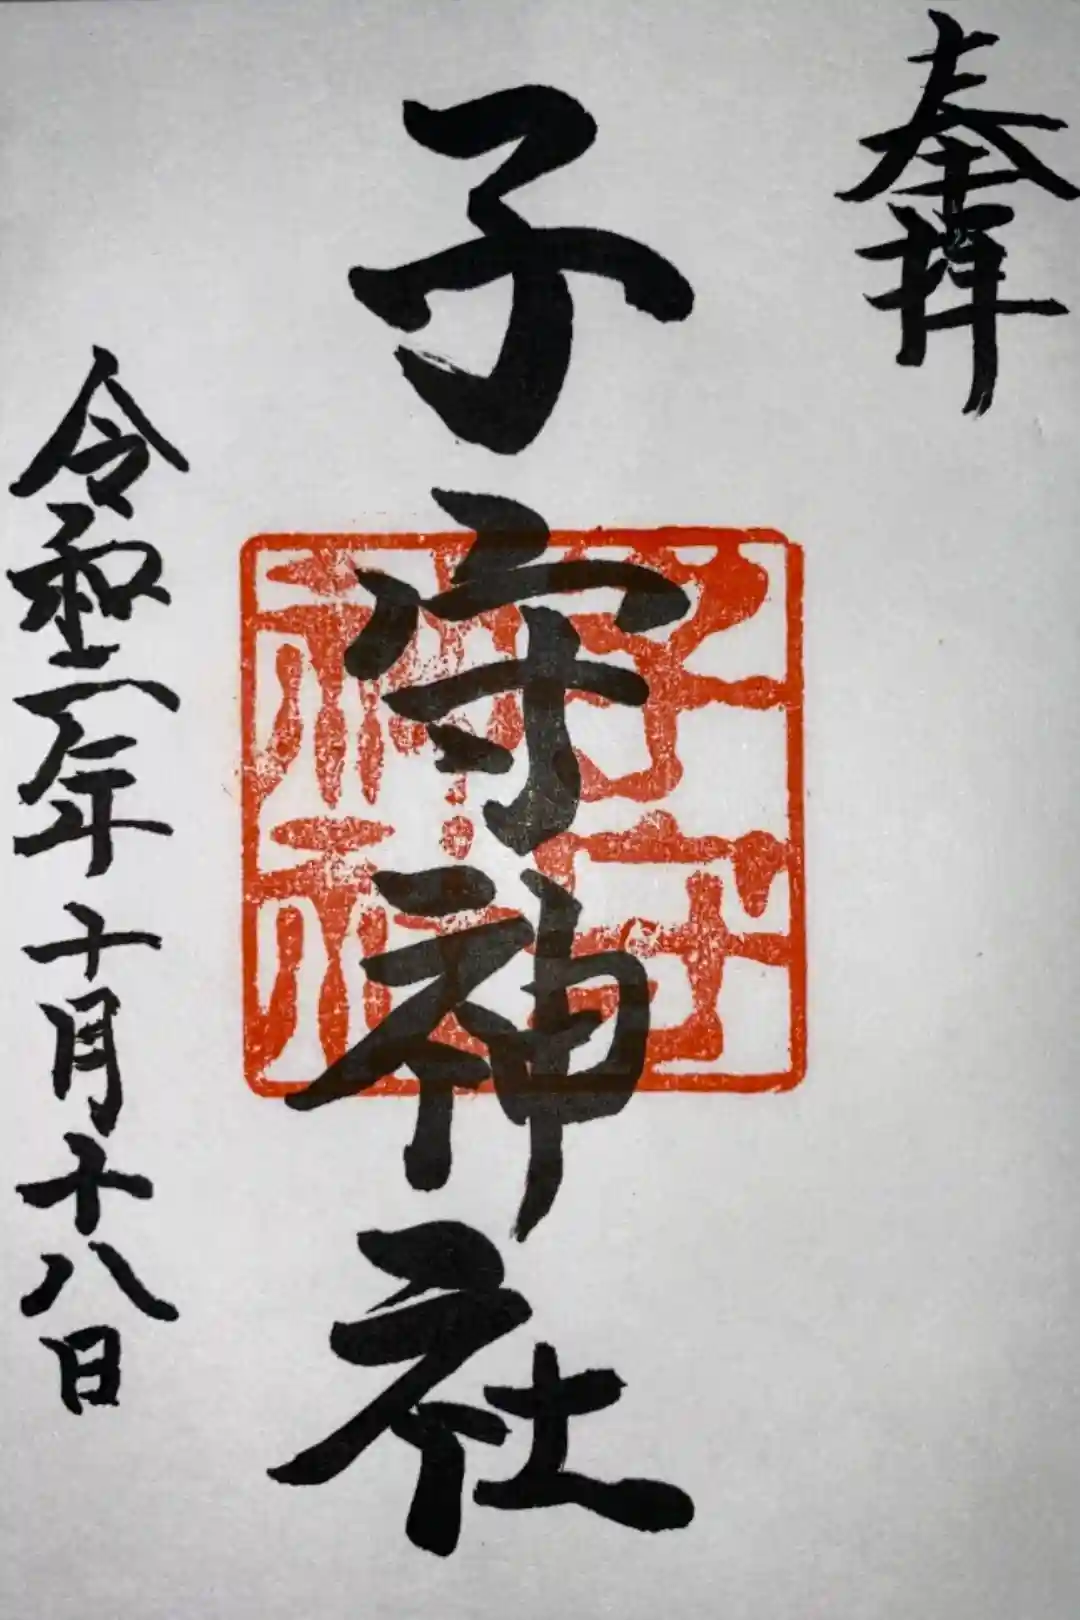 奉拝
子守神社
子守
神社
令和二年十月十八日